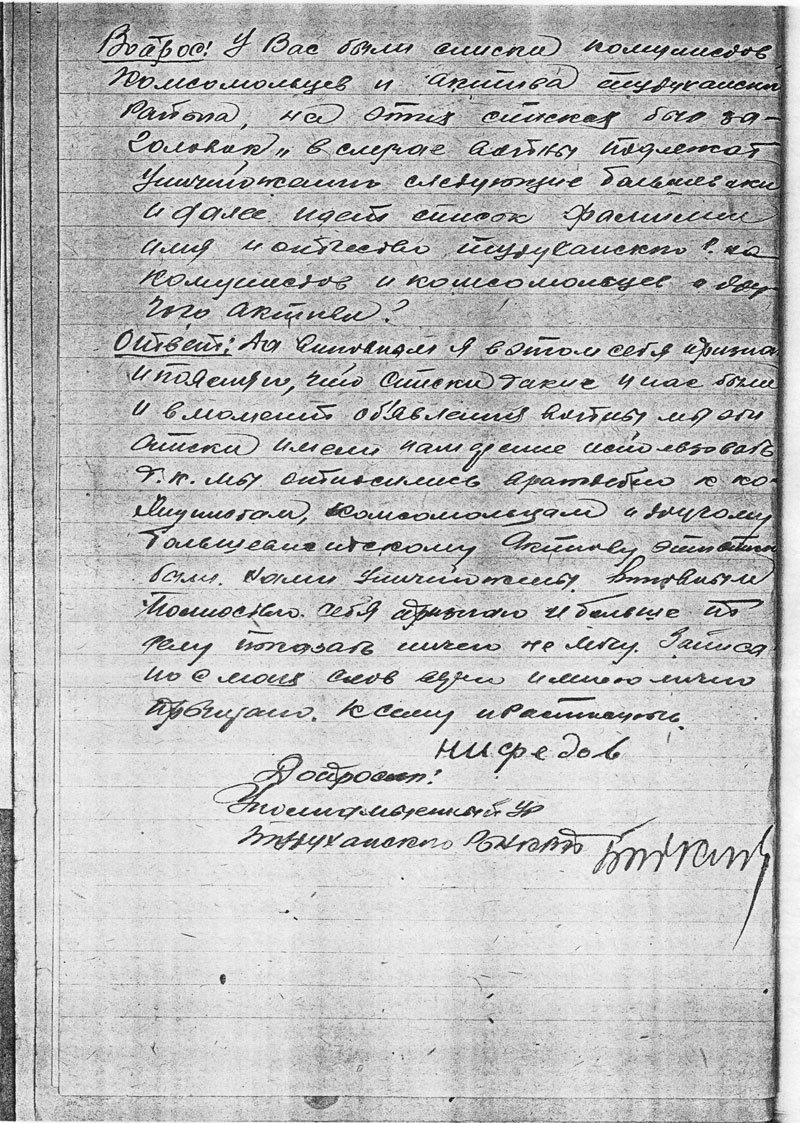 Вопрос: У Вас были списки комунистов
Комсомольцев и актива Туруханского
Района, на этих списках был за-
головок „ в случае войны подлежат
Уничтожению следующие большевики
и далее идет список фамилии
имя и отчество Туруханского р-на
Комунистов и комсомольцев и дру-
гого актива?
Ответ: Да виновным я в этом себя призна
и поясняю, что списки такие у нас были
и в момент объявления войны мы эти
списки имели намерение использовать
т.к. мы относились враждебно к ко-
мунистам, комсомольцам и другому
большевистскому активу, эти списки
были нами уничтожены. Виновным
Полностью себя признаю и больше по
сему показать ничего не могу. Записа
но с моих слов верно и мною лично
прочитано. К сему и распишусь.
Нифедов
Допросил:
Уполномоченный
Туруханского